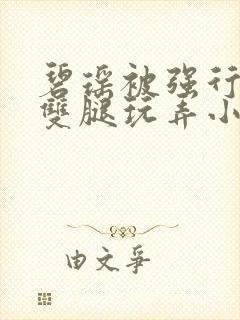 碧瑶被强行
雙腿玩弄小
由文爭